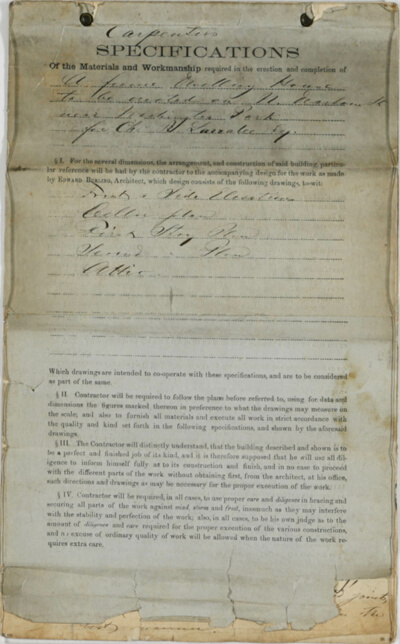 Carpenters
SPECIFICATIONS
Of the Materials and Workmanship required in the erection and completion of
A frame Dwelling House
to be erected on N.
near Washington Park
for Ch. B. Esq.
§ I. For the several dimensions, the arrangement, and construction of said building, particu-
lar reference will be had by the contractor to the accompanying design for the work as made
by EDWARD BURLING, Architect, which design consists of the following drawings, to-wit:
Front & Side Elevations
Cellar plan
First Story Plan
Second " Plan
Attic "
Which drawings are intended to co-operate with these specifications, and are to be considered
as part of the same.
§ II. Contractor will be required to follow the plans before referred to, using for data and
dimensions the figures marked thereon in preference to what the drawings may measure on
the scale; and also to furnish all materials and execute all work in strict accordance with
the quality and kind set forth in the following specifications, and shown by the aforesaid
drawings.
§ III. The Contractor will distinctly understand, that the building described and shown is to
be a perfect and finished job of its kind, and it is therefore supposed that he will use all dil-
igence to inform himself fully as to its construction and finish, and in no case to proceed
with the different parts of the work without obtaining first, from the architect, at his office,
such directions and drawings as may be necessary for the proper execution of the work.
§ IV. Contractor will be required, in all cases, to use proper care and diligence in bracing and
securing all parts of the work against wind, storm and frost, inasmuch as they may interfere
with the stability and perfection of the work; also, in all cases, to be his own judge as to the
amount of diligence and care required for the proper execution of the various constructions,
and no excuse of ordinary quality of work will be allowed when the nature of the work re-
quires extra care.